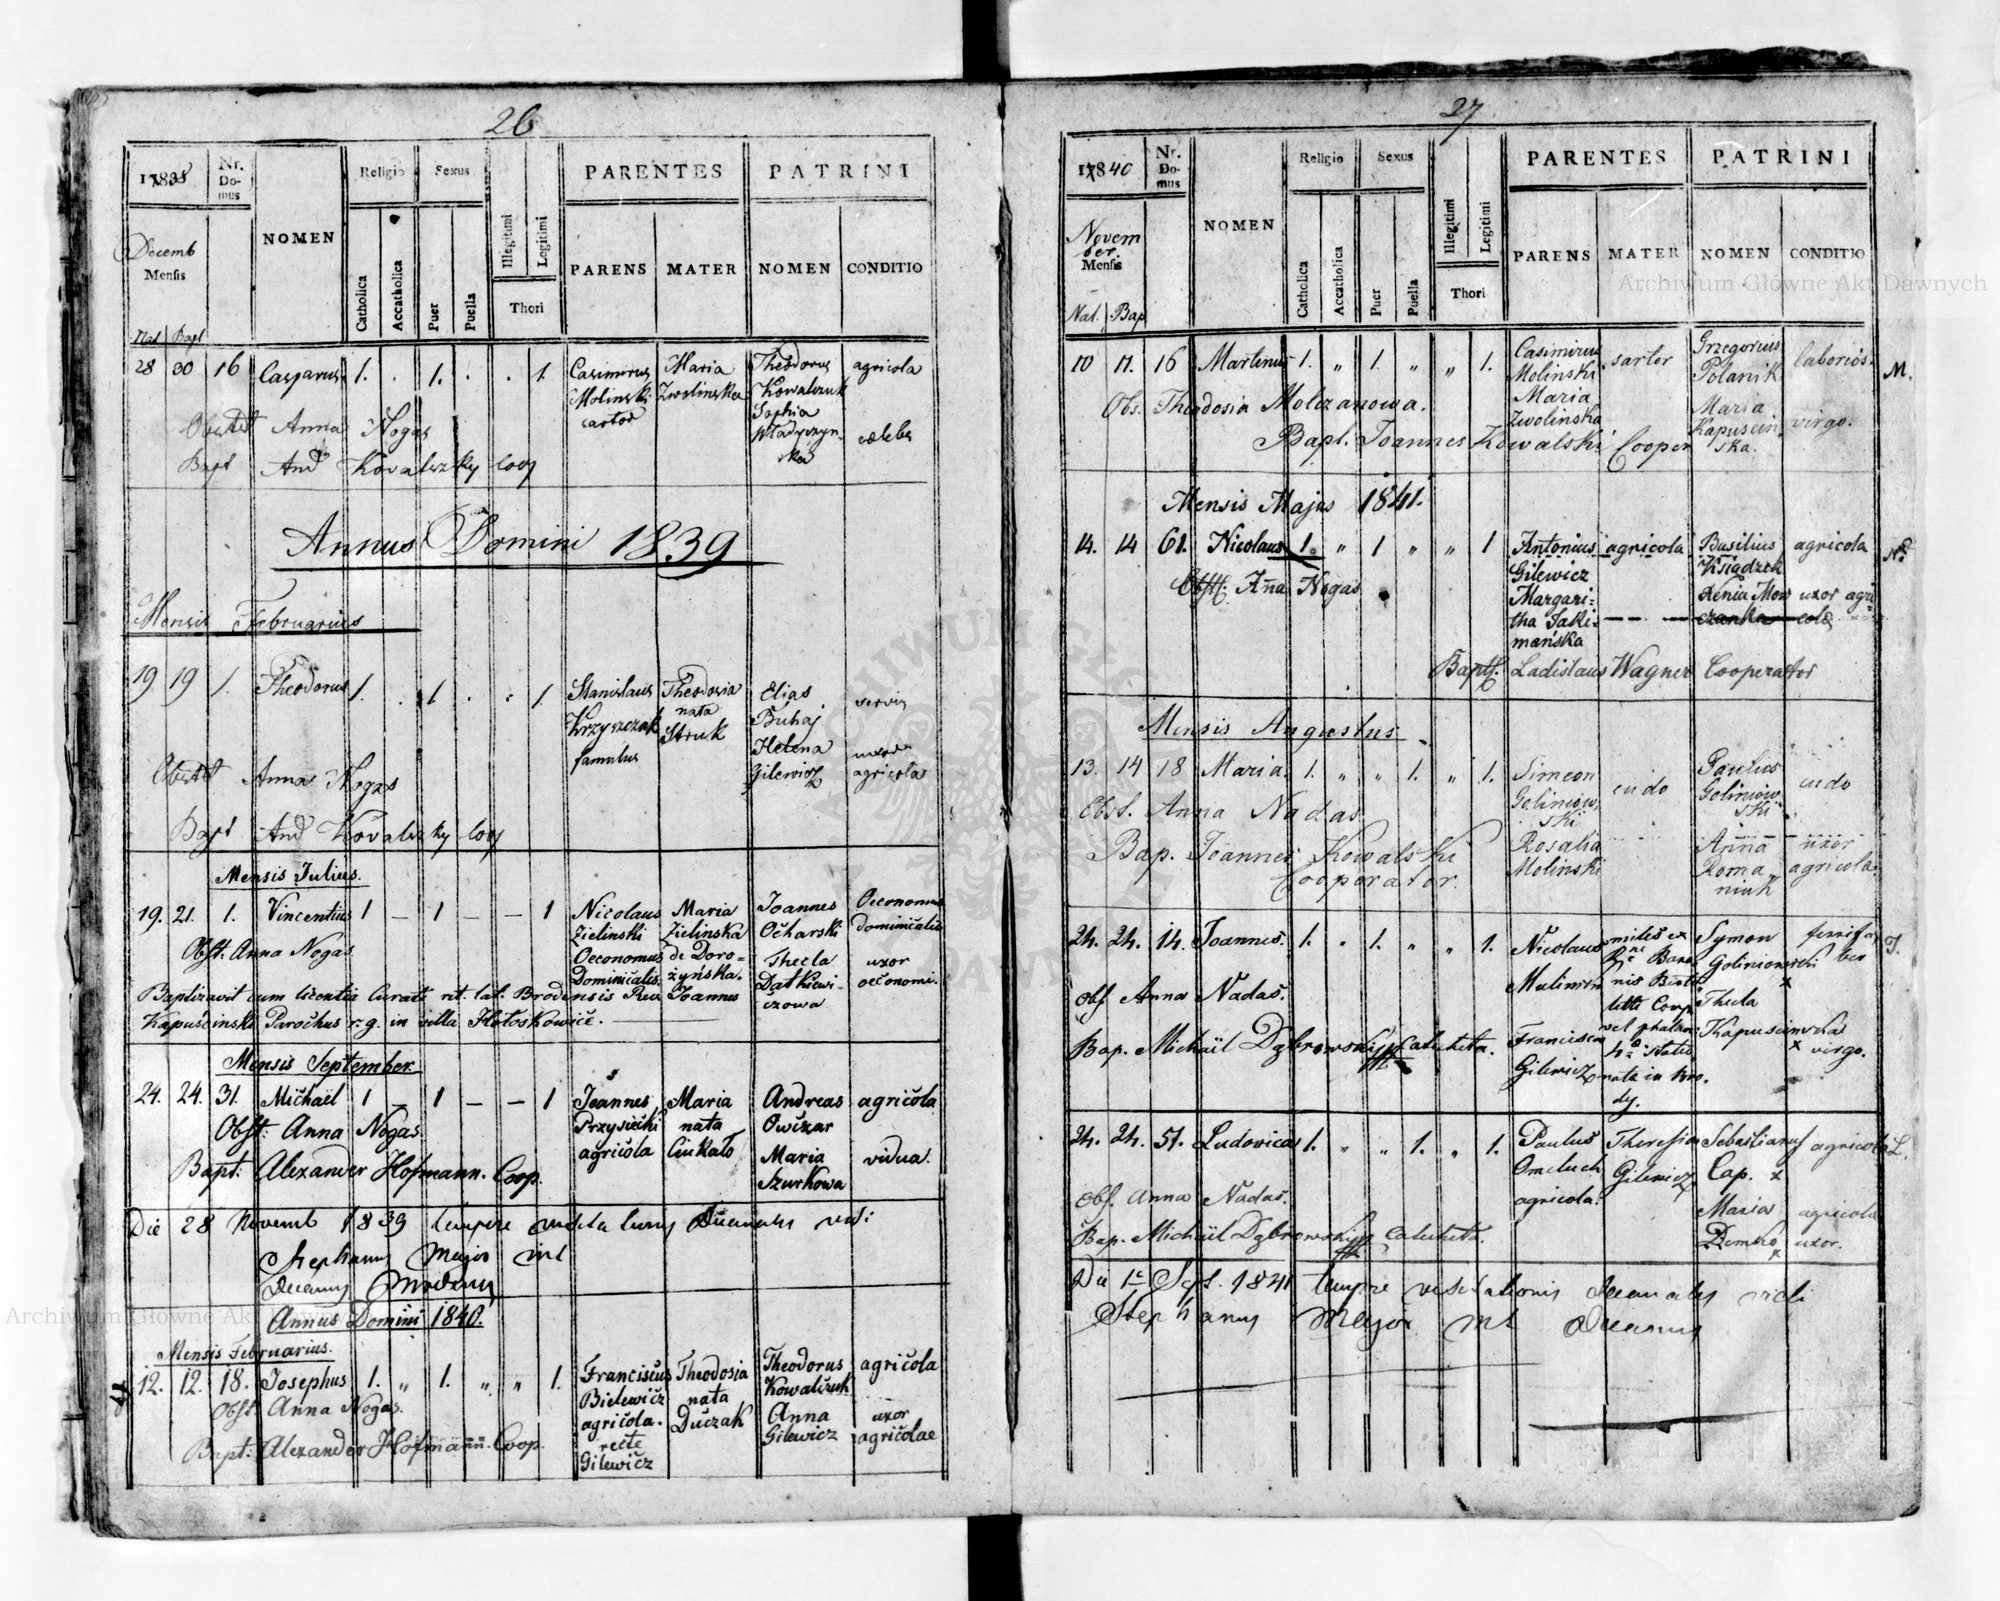 26
1838
Nr. Domus
NOMEN
Religio
Sexus
PARENTES
PATRINI
Decemb
Mensis
Catholica
Accatholica
Puer
Puella
Illegitimi
Legitimi
Thori
PARENS
MATER
NOMEN
CONDITIO
Nat Bapt
28 30 16 Casparus 1. . 1. . . 1.
Casimirus
Molinski
sartor
Maria
Zwolinska
Theodorus
Kowalczuk
Sophia
agricola
cælebs
Obstet Anna Nogas
Bapt And Kovalszky Coop
Annus Domini 1839
Mensis Februarius
19 19 1. Theodorus 1. . 1 . . 1
Stanislaus
Krzyszczak
famulus
Theodosia
nata
Struk
Elias
Buhaj
Helena
Gilewicz
servus
uxor
agricola
Obstet Anna Nogas
Bapt And Kovalszky Coop
Mensis Julius.
19. 21. 1. Vincentius 1 – 1 – – 1
Nicolaus
Zielinski
Oeconomus
Dominicalis.
Maria
Zielinska
de Doro=
żyńska.
Joannes
Ocharski
Thecla
Datkiewi-
czowa
Oeconomus
dominicalis
uxor
oeconomi.
Obst. Anna Nogas
Baptizavit cum licentia Curati rit. lat. Brodensis Rev Joannes
Kapuścinski Parochus r. g. in villa Hołoskowice.
Mensis September
24. 24. 31. Michaël 1 – 1 – – 1
Joannes
Przysiecki
agricola
Maria
nata
Ciukało
Andreas
Owczar
Maria
Szurkowa
agricola
vidua.
Obst: Anna Nogas.
Bapt: Alexander Hofmann. Coop.
Die 28 Novemb 1839 tempore Decanalis vidi
Stephanus Major
Decanus Brodensis
Annus Domini 1840.
Mensis Februarius.
12. 12. 18. Josephus 1. „ 1. „ „ 1.
Franciscus
Bielewicz
agricola.
recte
Gilewicz
Theodosia
nata
Duczak
Theodorus
Kowalczuk
Anna
Gilewicz
agricola
uxor
agricolae
Obst. Anna Nogas.
Bapt: Alexander Hofmann. Coop.
27
1840
Nr. Domus
NOMEN
Religio
Sexus
PARENTES
PATRINI
November.
Mensis
Catholica
Accatholica
Puer
Puella
Illegitimi
Legitimi
Thori
PARENS
MATER
NOMEN
CONDITIO
Nat. Bap
10 11. 16 Martinus 1. „ 1. „ „ 1.
Casimirus
Molinski
Maria
Zwolinska
sartor
Grzegorius
Polanik
Maria
Kapuscin
ska.
laborios.
virgo.
M.
Obs. Theodosia Molczanowa.
Bapt. Joannes Kowalski Cooper
Mensis Majus 1841.
14. 14 61. Nicolaus 1. „ 1 „ „ 1
Antonius
Gilewicz
Margari=
tha Jaki=
mańska
agricola
Basilius
Książek
Xenia Mow
czanka
agricola
uxor agri
colæ
N.
Obstt. Anna Nogas
Baptt. Ladislaus Wagner Cooperator
Mensis Augustus
13. 14 18 Maria. 1. „ „ 1. „ 1.
Simeon
Goliniow
ski
Rosalia
Molinski
cudo
Paulus
Goliniow
ski
Anna
Roma
niuk
cudo
uxor
agricola.
Obst. Anna Nadas
Bap. Joannes Kowalski
Cooperator.
24. 24. 14. Joannes. 1. „ 1. „ „ 1.
Nicolaus
Francisca
Gilewicz
miles ex
nata in Bro.
dy.
Symon
Goliniowski
Thecla
Kapuscinska
virgo.
J.
Obst Anna Nadas.
Bap. Michaïl Dąbrowski
24. 24. 51. Ludovica 1. „ „ 1. „ 1.
Paulus
Omeluch
agricola.
Theressia
Gilewicz
Sebastianus
Cap. x
Maria
Demko
x
agricola
agricola
uxor.
L.
Obst. Anna Nadas.
Bap. Michaïl Dąbrowski
Die 1 Sept. 1841 tempore visitationis Decanalis vidi
Stephanus Major Decanus
Archiwum Główne Akt Dawnych
Archiwum Główne Akt Dawnych